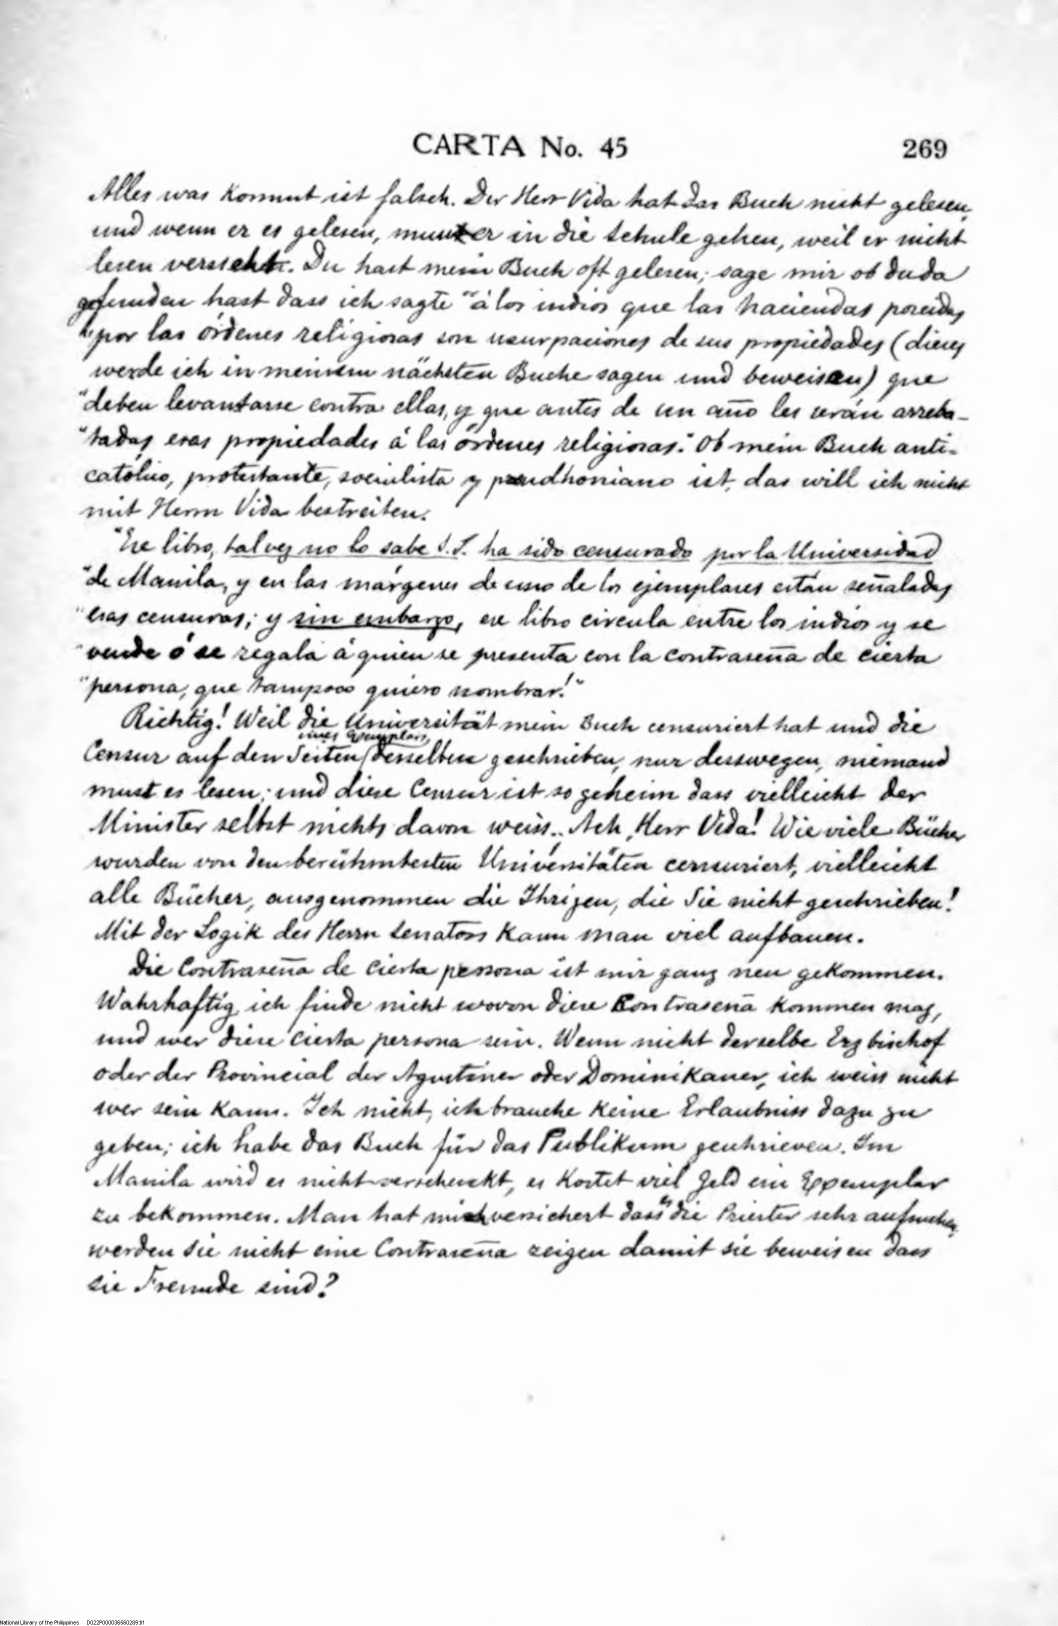 CARTA No. 45 269
Alles was kommt ist falsch. Der Herr Vida hat das Buch nicht gelesen,
und wenn er es gelesen, muss er in die Schule gehen, weil er nicht
lesen versteht. Du hast mein Buch oft gelesen; sage mir ob du da
gefunden hast dass ich sagte "á los indios que las haciendas poseidas
"por las órdenes religiosas son usurpaciones de sus propiedades (dieses
werde ich in meinem nächsten Buche sagen und beweisen) que
"deben levantarse contra ellas, y que antes de un año les serán arreba-
"tadas esas propiedades á las órdenes religiosas." Ob mein Buch anti-
católico, protestante, socialista y proudhoniano ist, das will ich nicht
mit Herrn Vida bestreiten.
"Ese libro, tal vez no lo sabe S.S. ha sido censurado por la Universidad
"de Manila, y en las márgenes de uno de los ejemplares están señaladas
"esas censuras; y sin embargo, ese libro circula entre los indios y se
"vende ó se regala á quien se presenta con la contraseña de cierta
"persona, que tampoco quiero nombrar!"
Richtig! Weil die Universität mein Buch censuriert hat und die
eines Exemplars
Censur auf den Seiten desselben geschrieben, nur desswegen, niemand
must es lesen; und diese Censur ist so geheim dass vielleicht der
Minister selbst nichts davon weiss.. Ach, Herr Vida! Wie viele Bücher
wurden von den berühmtesten Universitäten censuriert, vielleicht
alle Bücher, ausgenommen die Ihrigen, die Sie nicht geschrieben!
Mit der Logik des Herrn Senators kann man viel aufbauen.
Die Contraseña de cierta persona ist mir ganz neu gekommen.
Wahrhaftig ich finde nicht wovon diese Contraseña kommen mag,
und wer diese cierta persona sein. Wenn nicht derselbe Erzbischof
oder der Provincial der Agustiner oder Dominikaner, ich weiss nicht
wer sein kann. Ich nicht, ich brauche keine Erlaubniss dazu zu
geben; ich habe das Buch für das Publikum geschrieven. Im
Manila wird es nicht verschenkt, es kostet viel Geld ein Exemplar
zu bekommen. Man hat mich versichert dass es die Priester sehr aufsuchen,
werden sie nicht eine Contraseña zeigen damit sie beweisen dass
sie Freunde sind?
National Library of the Philippines